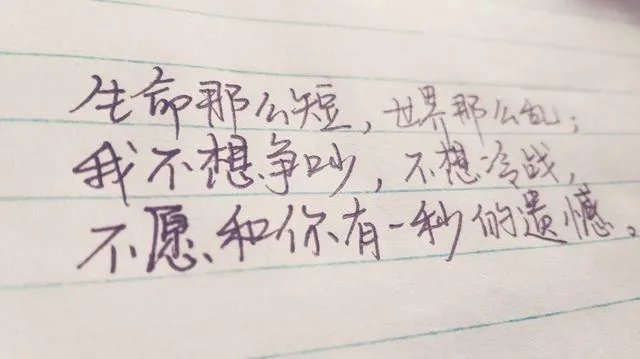 生命那么短，世界那么乱，
我不想争吵，不想冷战，
不愿和你有一秒的遗憾。